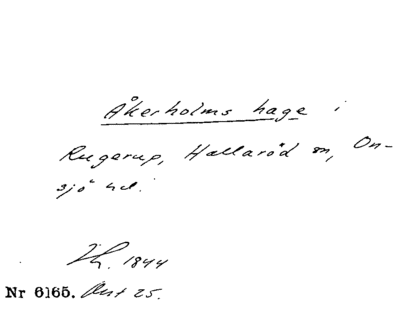 Åkerholms hage i
Rugerup, Hallaröd sn, On-
sjö hd.
1844
Nr 6165. 25.